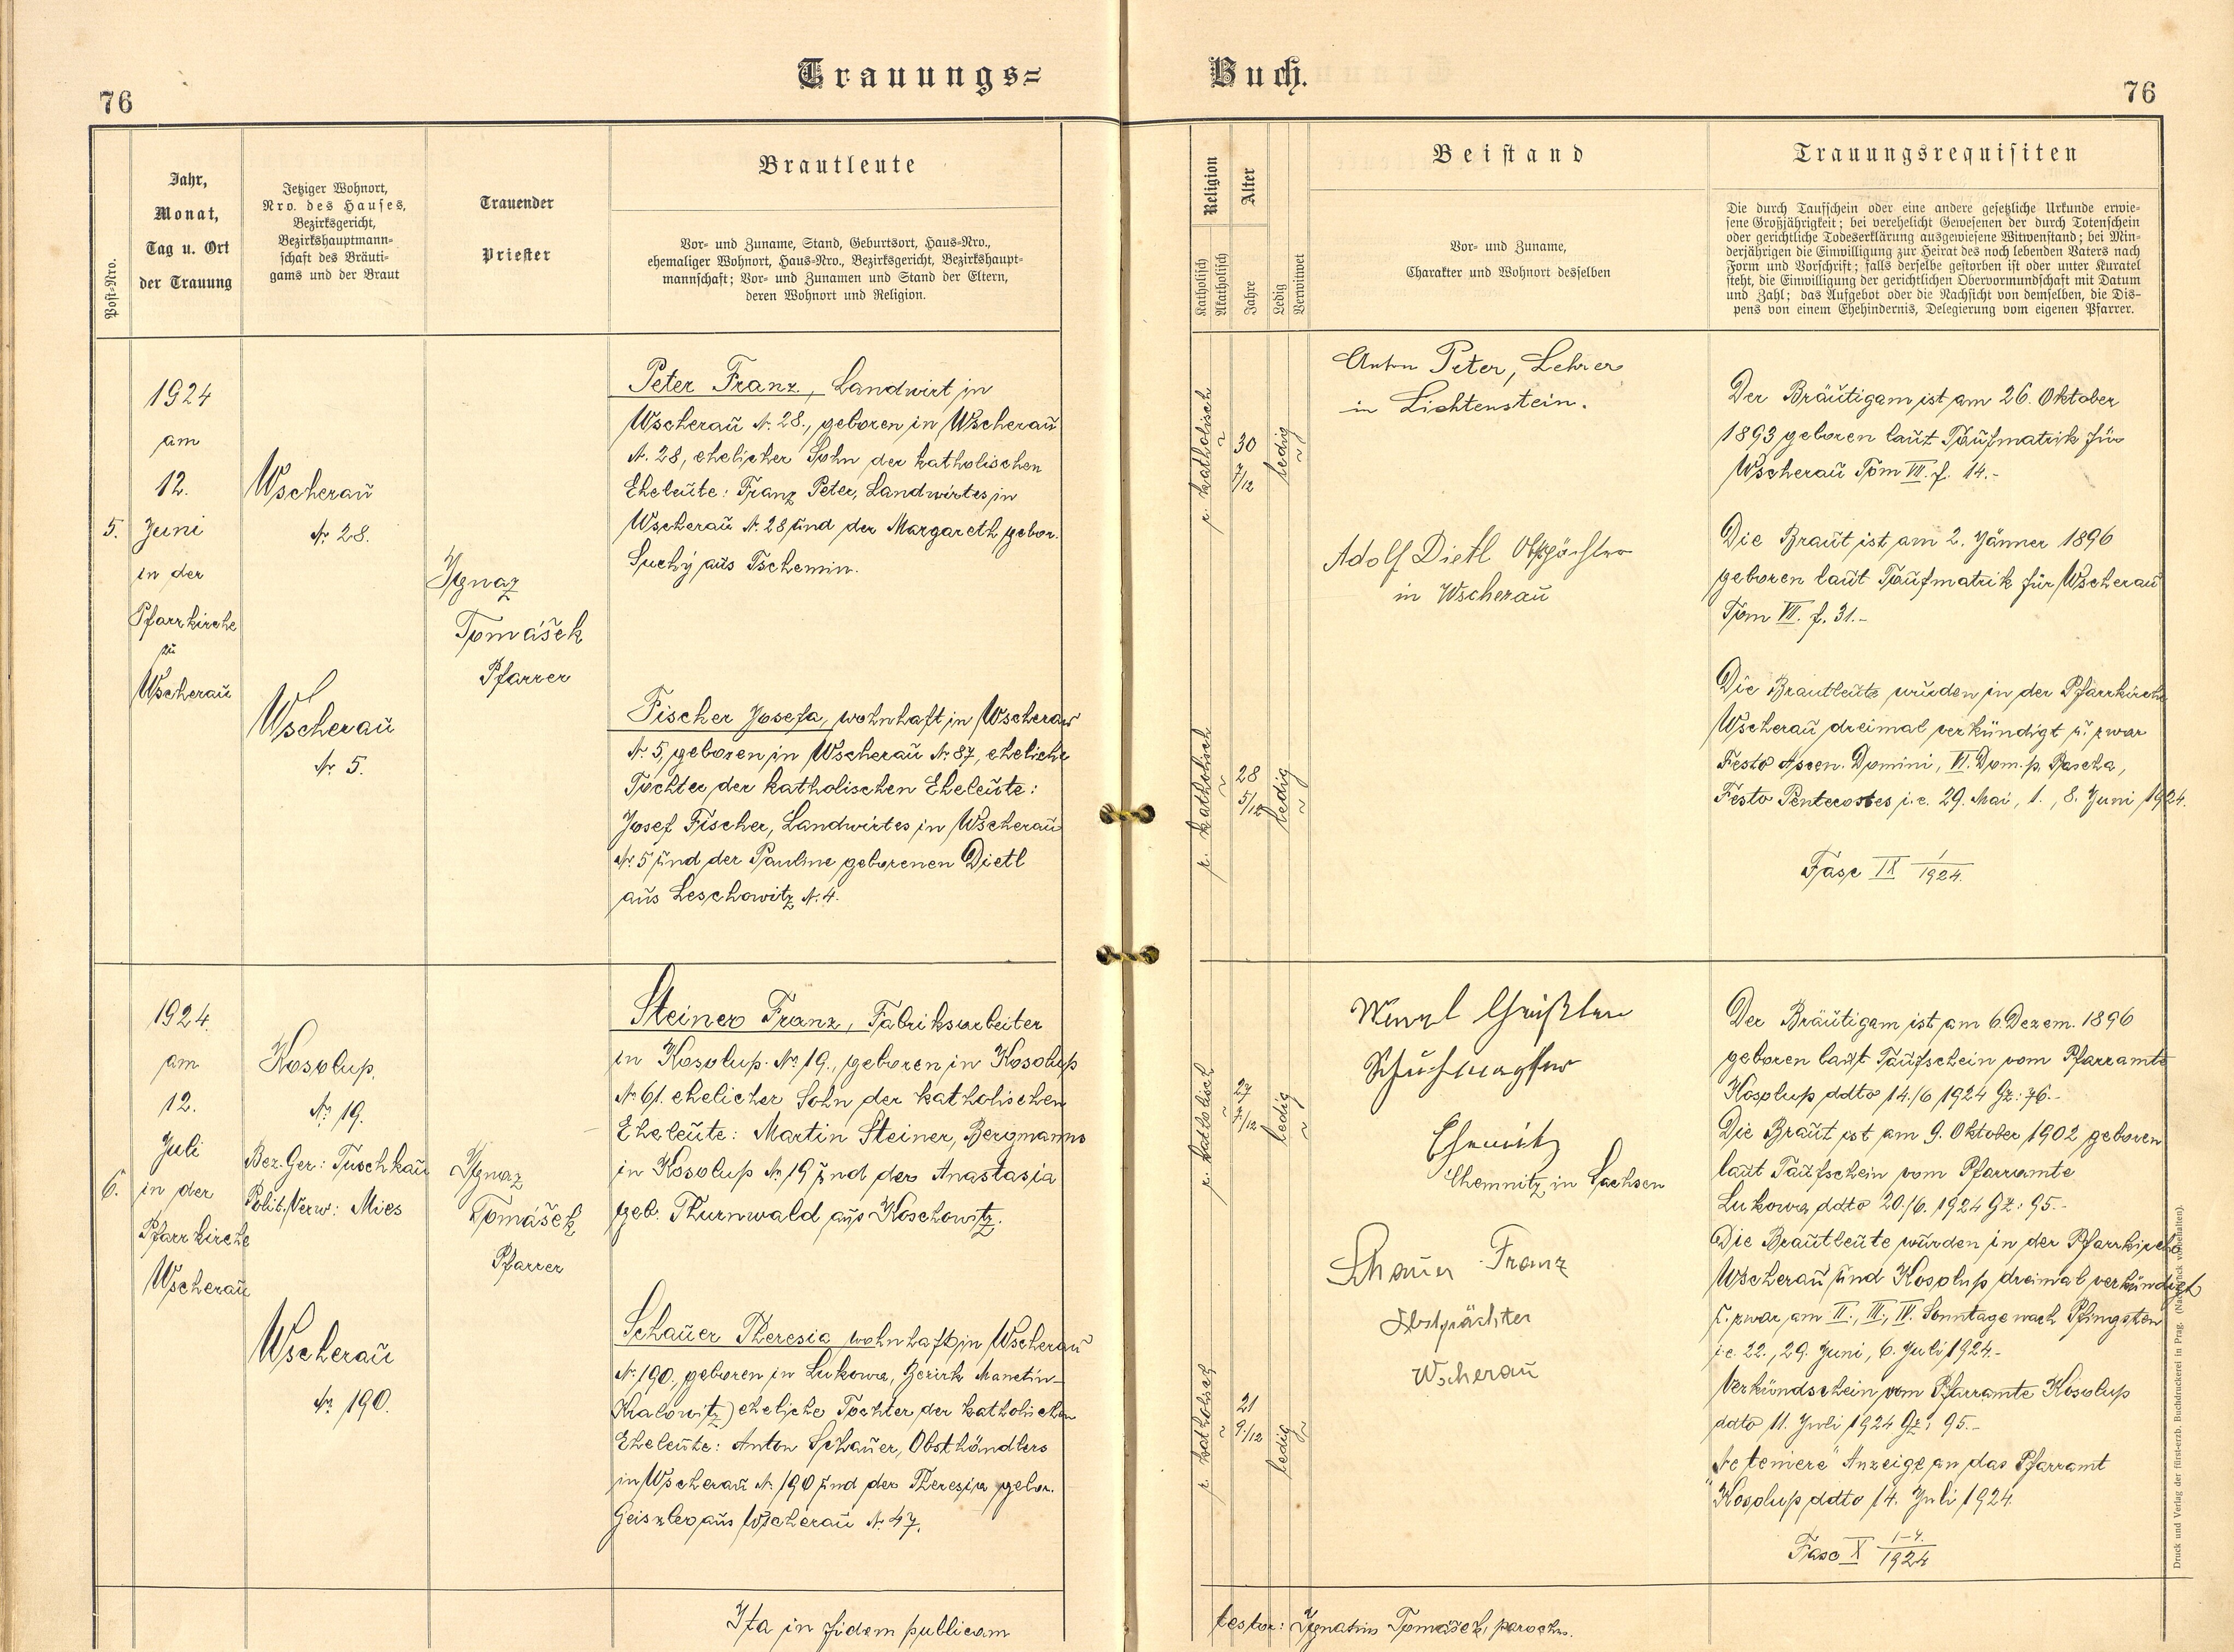 Trauungs=
Buch.
76
76
Post=Nro.
Jahr,
Monat,
Tag u. Ort
der Trauung
Jetziger Wohnort,
Nro. des Hauses,
Bezirksgericht,
Bezirkshauptmann=
schaft des Bräuti=
gams und der Braut
Trauender
Priester
Brautleute
Vor= und Zuname, Stand, Geburtsort, Haus=Nro.,
ehemaliger Wohnort, Haus=Nro., Bezirksgericht, Bezirkshaupt=
mannschaft; Vor= und Zunamen und Stand der Eltern,
deren Wohnort und Religion.
Religion
Katholisch
Akatholisch
Alter
Jahre
Ledig
Verwitwet
Beistand
Vor= und Zuname,
Charakter und Wohnort desselben
Trauungsrequisiten
Die durch Taufschein oder eine andere gesetzliche Urkunde erwie=
sene Großjährigkeit; bei verehelicht Gewesenen der durch Totenschein
oder gerichtliche Todeserklärung ausgewiesene Witwenstand; bei Min=
derjährigen die Einwilligung zur Heirat des noch lebenden Vaters nach
Form und Vorschrift; falls derselbe gestorben ist oder unter Kuratel
steht, die Einwilligung der gerichtlichen Obervormundschaft mit Datum
und Zahl; das Aufgebot oder die Nachsicht von demselben, die Dis=
pens von einem Ehehindernis, Delegierung vom eigenen Pfarrer.
5.
1924
am
12.
Juni
in der
Pfarrkirche
zu
Wscherau
Wscherau
Nr. 28.
Wscherau
Nr. 5.
Ignaz
Tomášek
Pfarrer
Peter Franz, Landwirt in
Wscherau N. 28., geboren in Wscherau
N. 28, ehelicher Sohn der katholischen
Eheleute: Franz Peter, Landwirtes in
Wscherau N. 28 und der Margareth gebor.
Suchý aus Tschemin.
Fischer Josefa, wohnhaft in Wscherau
N. 5, geboren in Wscherau N. 87, eheliche
Tochter der katholischen Eheleute:
Josef Fischer, Landwirtes in Wscherau
N. 5 und der Pauline geborenen Dietl
aus Leschowitz N. 4.
r. katholisch
30
7/12
ledig
r. katholisch
28
5/12
ledig
Anton Peter, Lehrer
in Lichtenstein.
Adolf Dietl Obstpächter
in Wscherau
Der Bräutigam ist am 26. Oktober
1893 geboren laut Taufmatrik für
Wscherau Tom VII. f. 14.-
Die Braut ist am 2. Jänner 1896
geboren laut Taufmatrik für Wscherau
Tom VII. f. 31.-
Die Brautleute wurden in der Pfarrkirche
Wscherau dreimal verkündigt u. zwar
Festo Ascen. Domini, VI. Dom. p. Pascha,
Festo Pentecostes i. e. 29. Mai, 1., 8. Juni 1924.
Fasc IX 1/1924.
6.
1924.
am
12.
Juli
in der
Pfarrkirche
Wscherau
Kosolup.
Nr. 19.
Bez. Ger: Tuschkau
Polit. Verw: Mies
Wscherau
Nr. 190.
Ignaz
Tomášek
Pfarrer
Steiner Franz, Fabriksarbeiter
in Kosolup No 19., geboren in Kosolup
No 61. ehelicher Sohn der katholischen
Eheleute: Martin Steiner, Bergmanns
in Kosolup No 19 und der Anastasia
geb. Thurnwald aus Koschowitz.
Schauer Theresia wohnhaft in Wscherau
N. 190., geboren in Lukowa, Bezirk Manetin-
Kralowitz) eheliche Tochter der katholischen
Eheleute: Anton Schauer, Obsthändlers
in Wscherau N. 190 und der Theresia gebor.
Geiszler aus Wscherau N. 47.
r. katholisch
27
7/12
ledig
r. katholisch
21
9/12
ledig
Wenzl Geißler
Schuhmacher
Chemnitz
Chemnitz in Sachsen
Schauer Franz
Obstpächter
Wscherau
Der Bräutigam ist am 6. Dezem. 1896
geboren laut Taufschein vom Pfarramte
Kosolup ddto 14./6 1924 Gz: 76.-
Die Braut ist am 9. Oktober 1902 geboren
laut Taufschein vom Pfarramte
Lukowa ddto 20./6. 1924 Gz: 95.-
Die Brautleute wurden in der Pfarrkirche
Wscherau und Kosolup dreimal verkündigt
u. zwar am II., III., IV. Sonntage nach Pfingsten
i. e. 22., 29. Juni, 6. Juli 1924.-
Verkündschein vom Pfarramte Kosolup
ddto 11. Juli 1924 Gz: 95.-
"Ne temere" Anzeige an das Pfarramt
Kosolup ddto 14. Juli 1924.
Fasc X 1-4./1924
Ita in fidem publicam
testor: Ignatius Tomášek, parochus.
Druck und Verlag der fürst-erzb. Buchdruckerei in Prag. (Nachdruck vorbehalten).